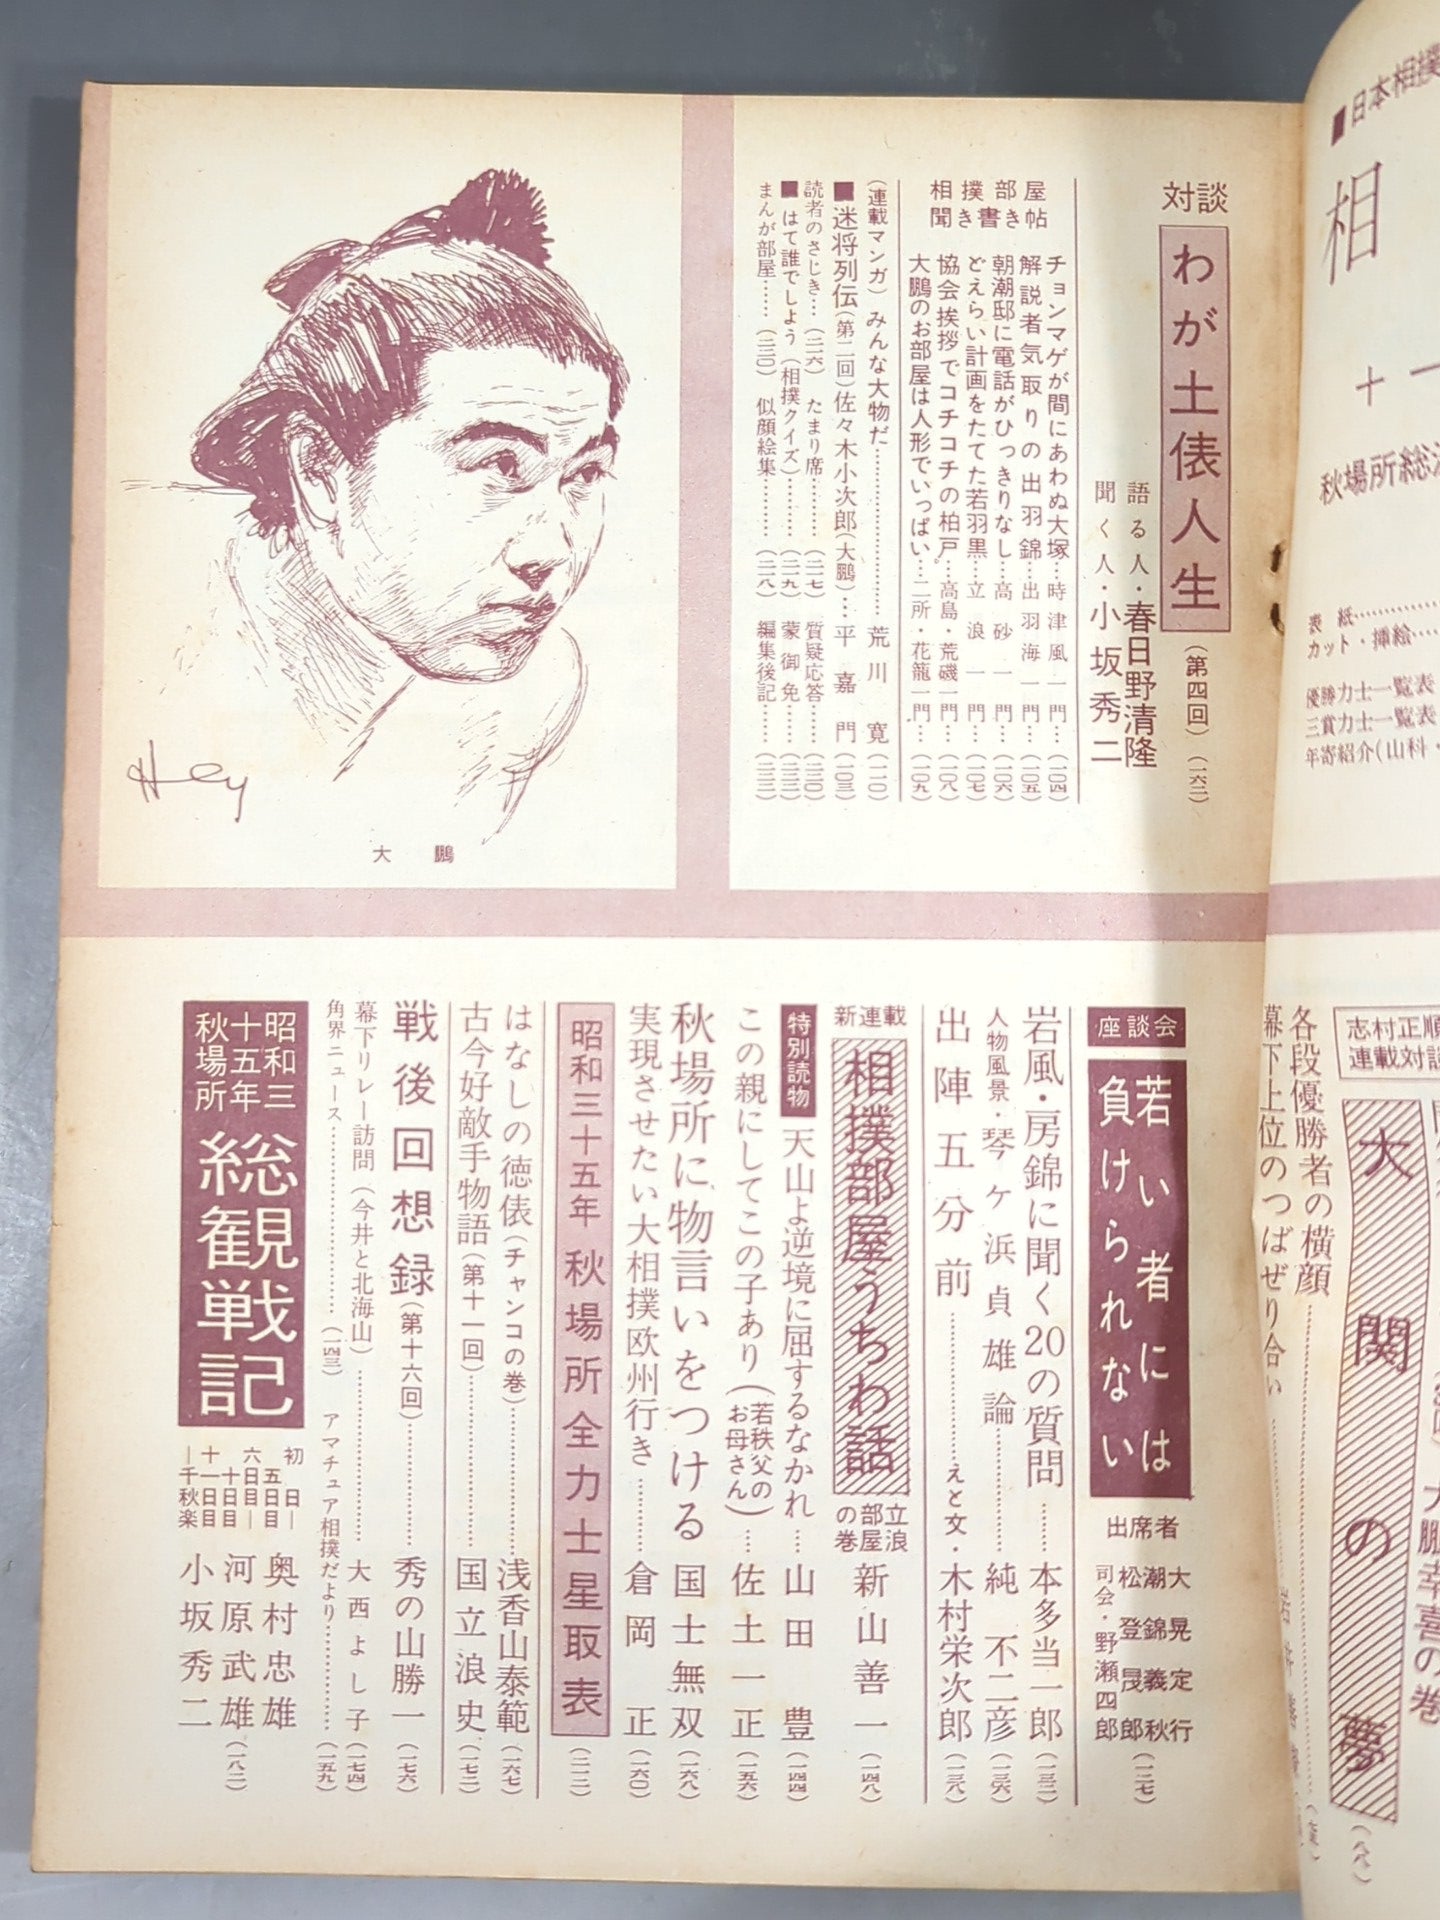 ■日本相撲
相
十一
秋場所総
表紙
カット・挿絵
優勝力士一覧表
三賞力士一覧表
年寄紹介(山科・
対談
わが土俵人生
(第四回)
(一六二)
語る人・春日野清隆
聞く人・小坂秀二
相撲部屋
聞き書き帖
チョンマゲが間にあわぬ大塚…時津風一門…(一〇四)
解説者気取りの出羽錦…出羽海一門…(一〇五)
朝潮邸に電話がひっきりなし…高砂一門…(一〇六)
どえらい計画をたてた若羽黒…立浪一門…(一〇七)
協会挨拶でコチコチの柏戸…高島・荒磯一門…(一〇八)
大鵬のお部屋は人形でいっぱい…二所・花籠一門…(一〇九)
(連載マンガ) みんな大物だ……荒川寛(一一〇)
■迷将列伝(第二回)佐々木小次郎(大鵬)…平嘉門(一〇三)
読者のさじき…(二一六) たまり席………(二一七) 質疑応答……(二二〇)
■はて誰でしよう(相撲クイズ)………(二一九) 蒙御免……(二二二)
まんが部屋……(二二〇) 似顔絵集………(二一八) 編集後記……(二二二)
Hey
大鵬
志村正順
連載対談
大関の夢
大鵬幸喜の巻
各段優勝者の横顔
幕下上位のつばぜり合い
座談会
若い者には
負けられない
出席者
大晃定行
潮錦義秋
松登茂郎
司会・野瀬四郎
(一二七)
岩風・房錦に聞く20の質問……本多当一郎(一三二)
人物風景・琴ケ浜貞雄論……純不二彦(一三六)
出陣五分前……えと文・木村栄次郎(一三八)
新連載
相撲部屋うちわ話
立浪部屋の巻
新山善一(一四八)
特別読物
天山よ逆境に屈するなかれ…山田豊(一四四)
この親にしてこの子あり(若秩父のお母さん)…佐土一正(一五六)
秋場所に物言いをつける 国士無双(一六八)
実現させたい大相撲欧州行き………倉岡正(一六〇)
昭和三十五年 秋場所全力士星取表(二一二)
はなしの徳俵(チャンコの巻)………浅香山泰範(一六七)
古今好敵手物語(第十一回)………国立浪史(一七二)
戦後回想録(第十六回)………秀の山勝一(一七六)
幕下リレー訪問(今井と北海山)………大西よし子(一七四)
角界ニュース………(一四三) アマチュア相撲だより………(一五九)
昭和三十五年秋場所
総観戦記
初日―五日目 奥村忠雄
六日目―十日目 河原武雄(一八二)
十一日目―千秋楽 小坂秀二